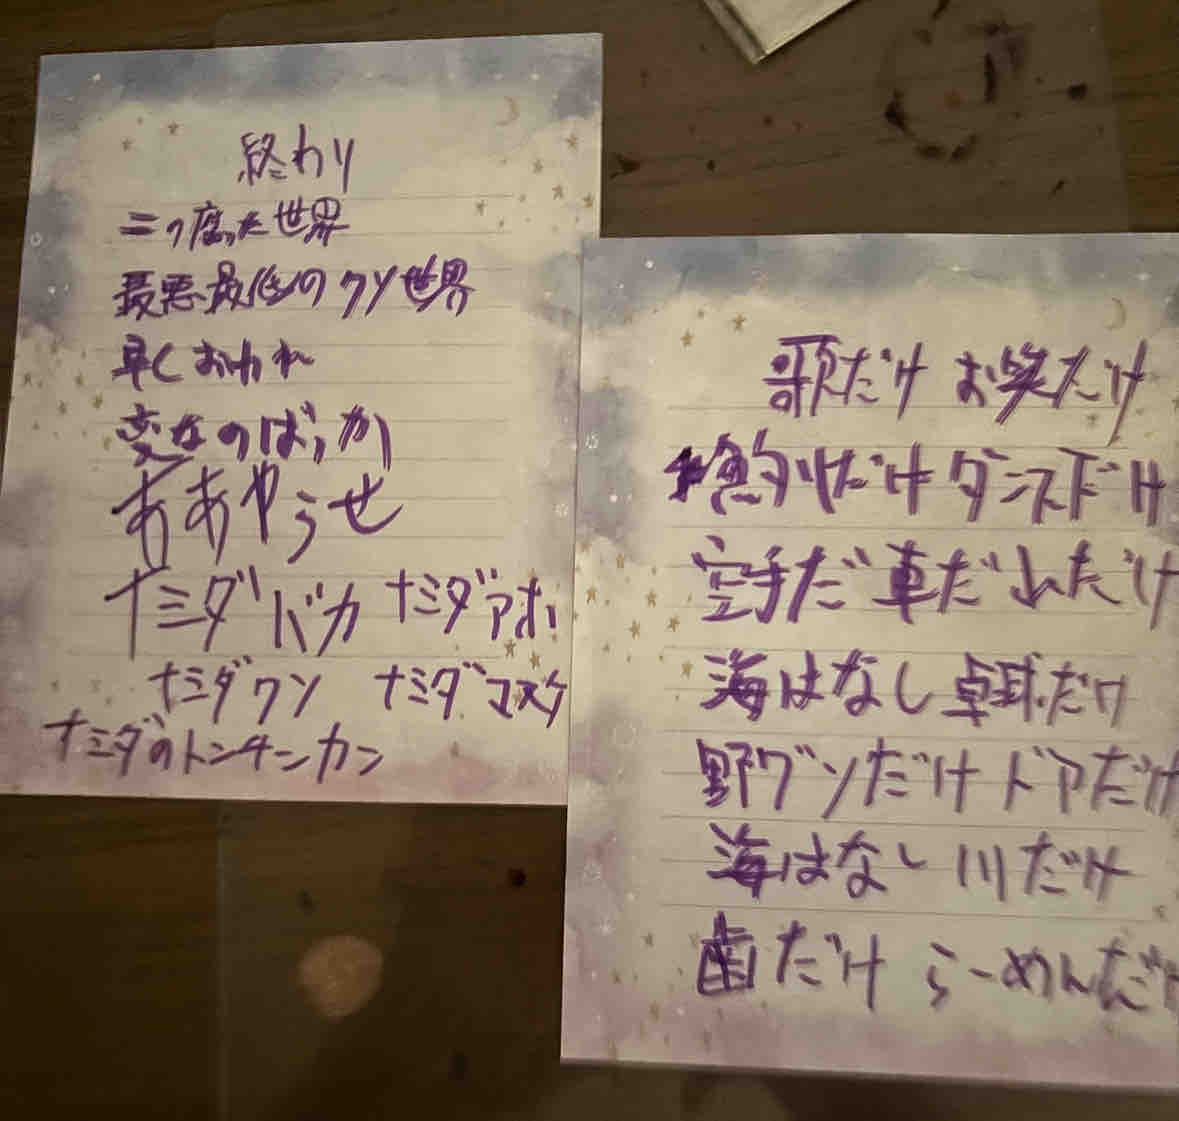 終わり
二つ腐った世界
最悪最低のクソ世界
早くおわれ
変なのばっか
ああやらせ
ナミダバカ ナミダアホ
ナミダクソ ナミダマヌケ
ナミダのトンチンカン
歌だけ お笑だけ
だけ ダンスだけ
空手だ 車だ 山だけ
海はなし 卓球だけ
野グソだけ ドアだけ
海はなし 川だけ
歯だけ らーめんだけ